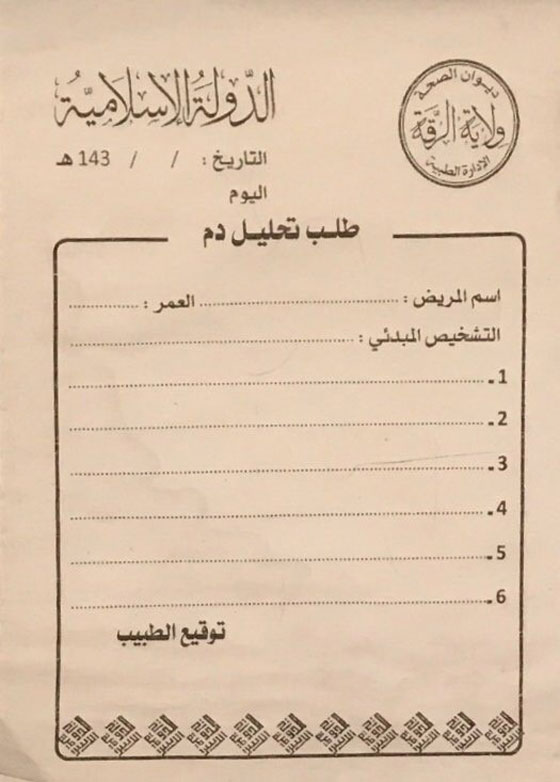 الدولة الإسلامية
ديوان الصحة
ولاية الرقة
الإدارة الطبية
التاريخ : / / 143 هـ
اليوم
طلب تحليل دم
اسم المريض : ........................ العمر : ............
التشخيص المبدئي : ........................
1 - ........................
2 - ........................
3 - ........................
4 - ........................
5 - ........................
6 - ........................
توقيع الطبيب